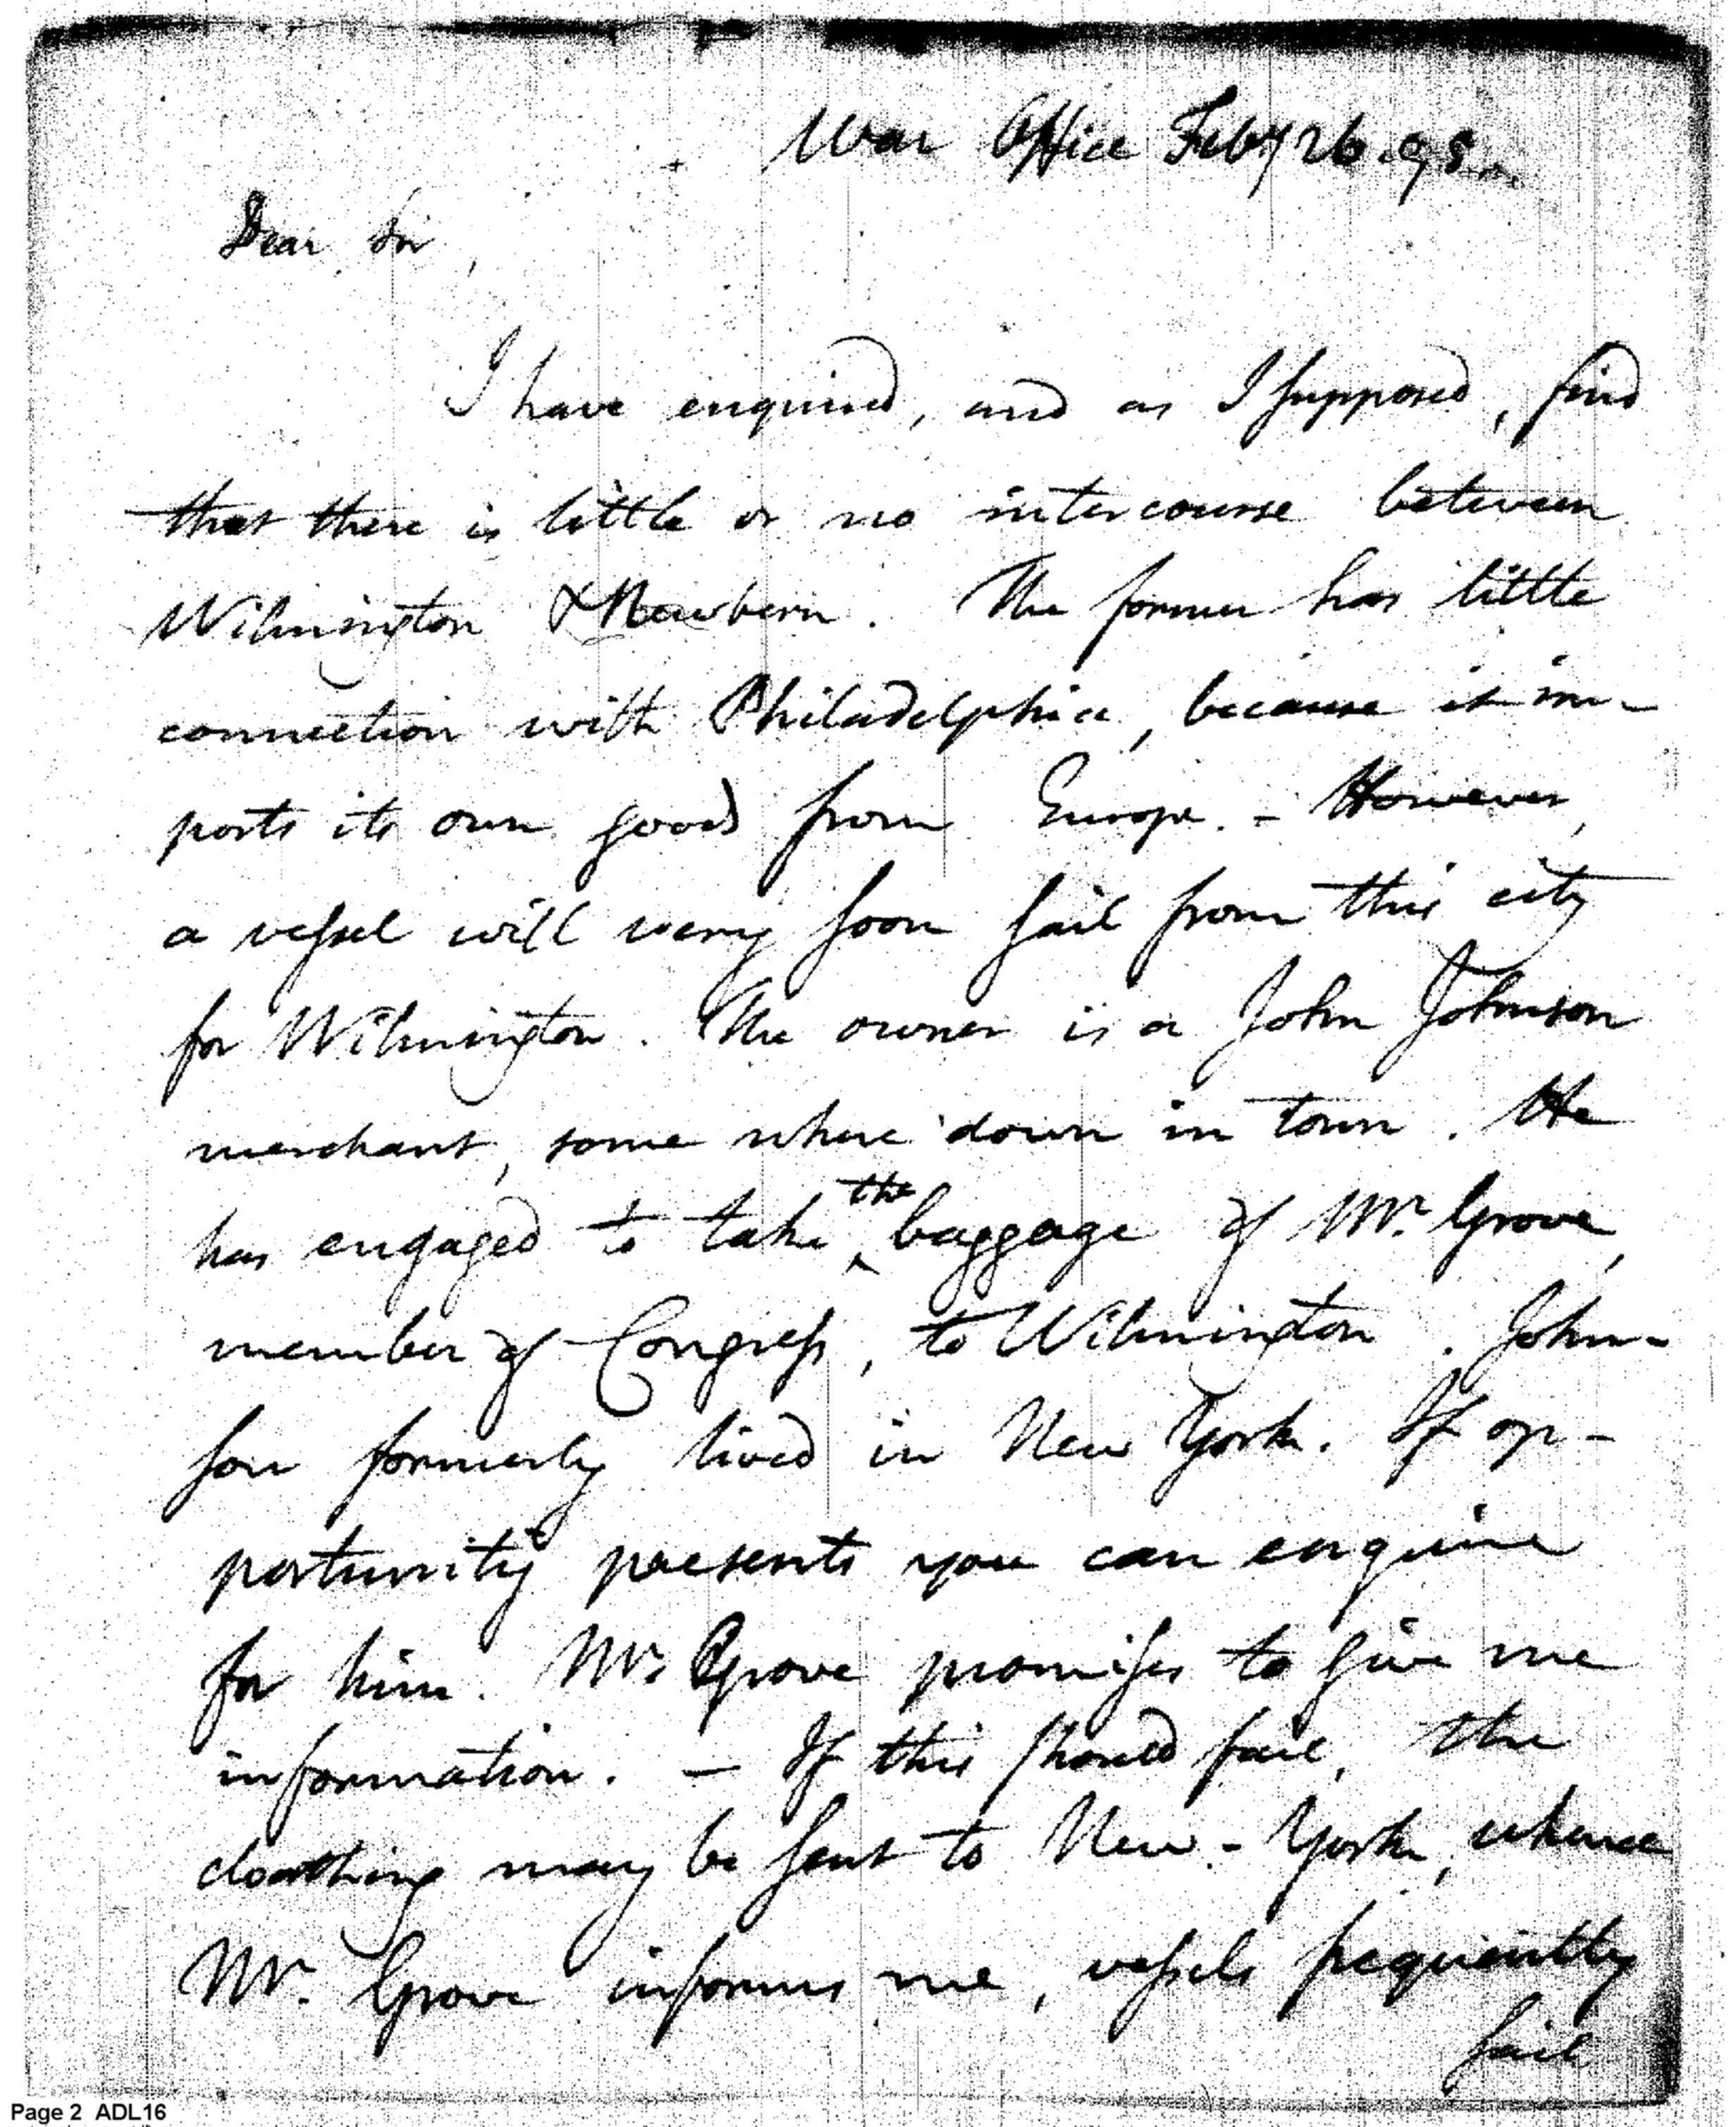 War Office Feby 26. 95.
Dear Sir,
I have enquired, and as I supposed, find
that there is little or no intercourse between
Wilmington & Newbern. The former has little
connection with Philadelphia, because it im-
ports its own goods from Europe. - However,
a vessel will very soon sail from this city
for Wilmington. The owner is a John Johnson
merchant, some where down in town. He
has engaged to take the baggage of Mr. Grove,
member of Congress, to Wilmington. John-
son formerly lived in New York. If op-
portunity presents you can enquire
for him. Mr. Grove promises to give me
information. - If this should fail, the
cloathing may be sent to New-York, whence
Mr. Grove informs me, vessels frequently
sail
Page 2 ADL16